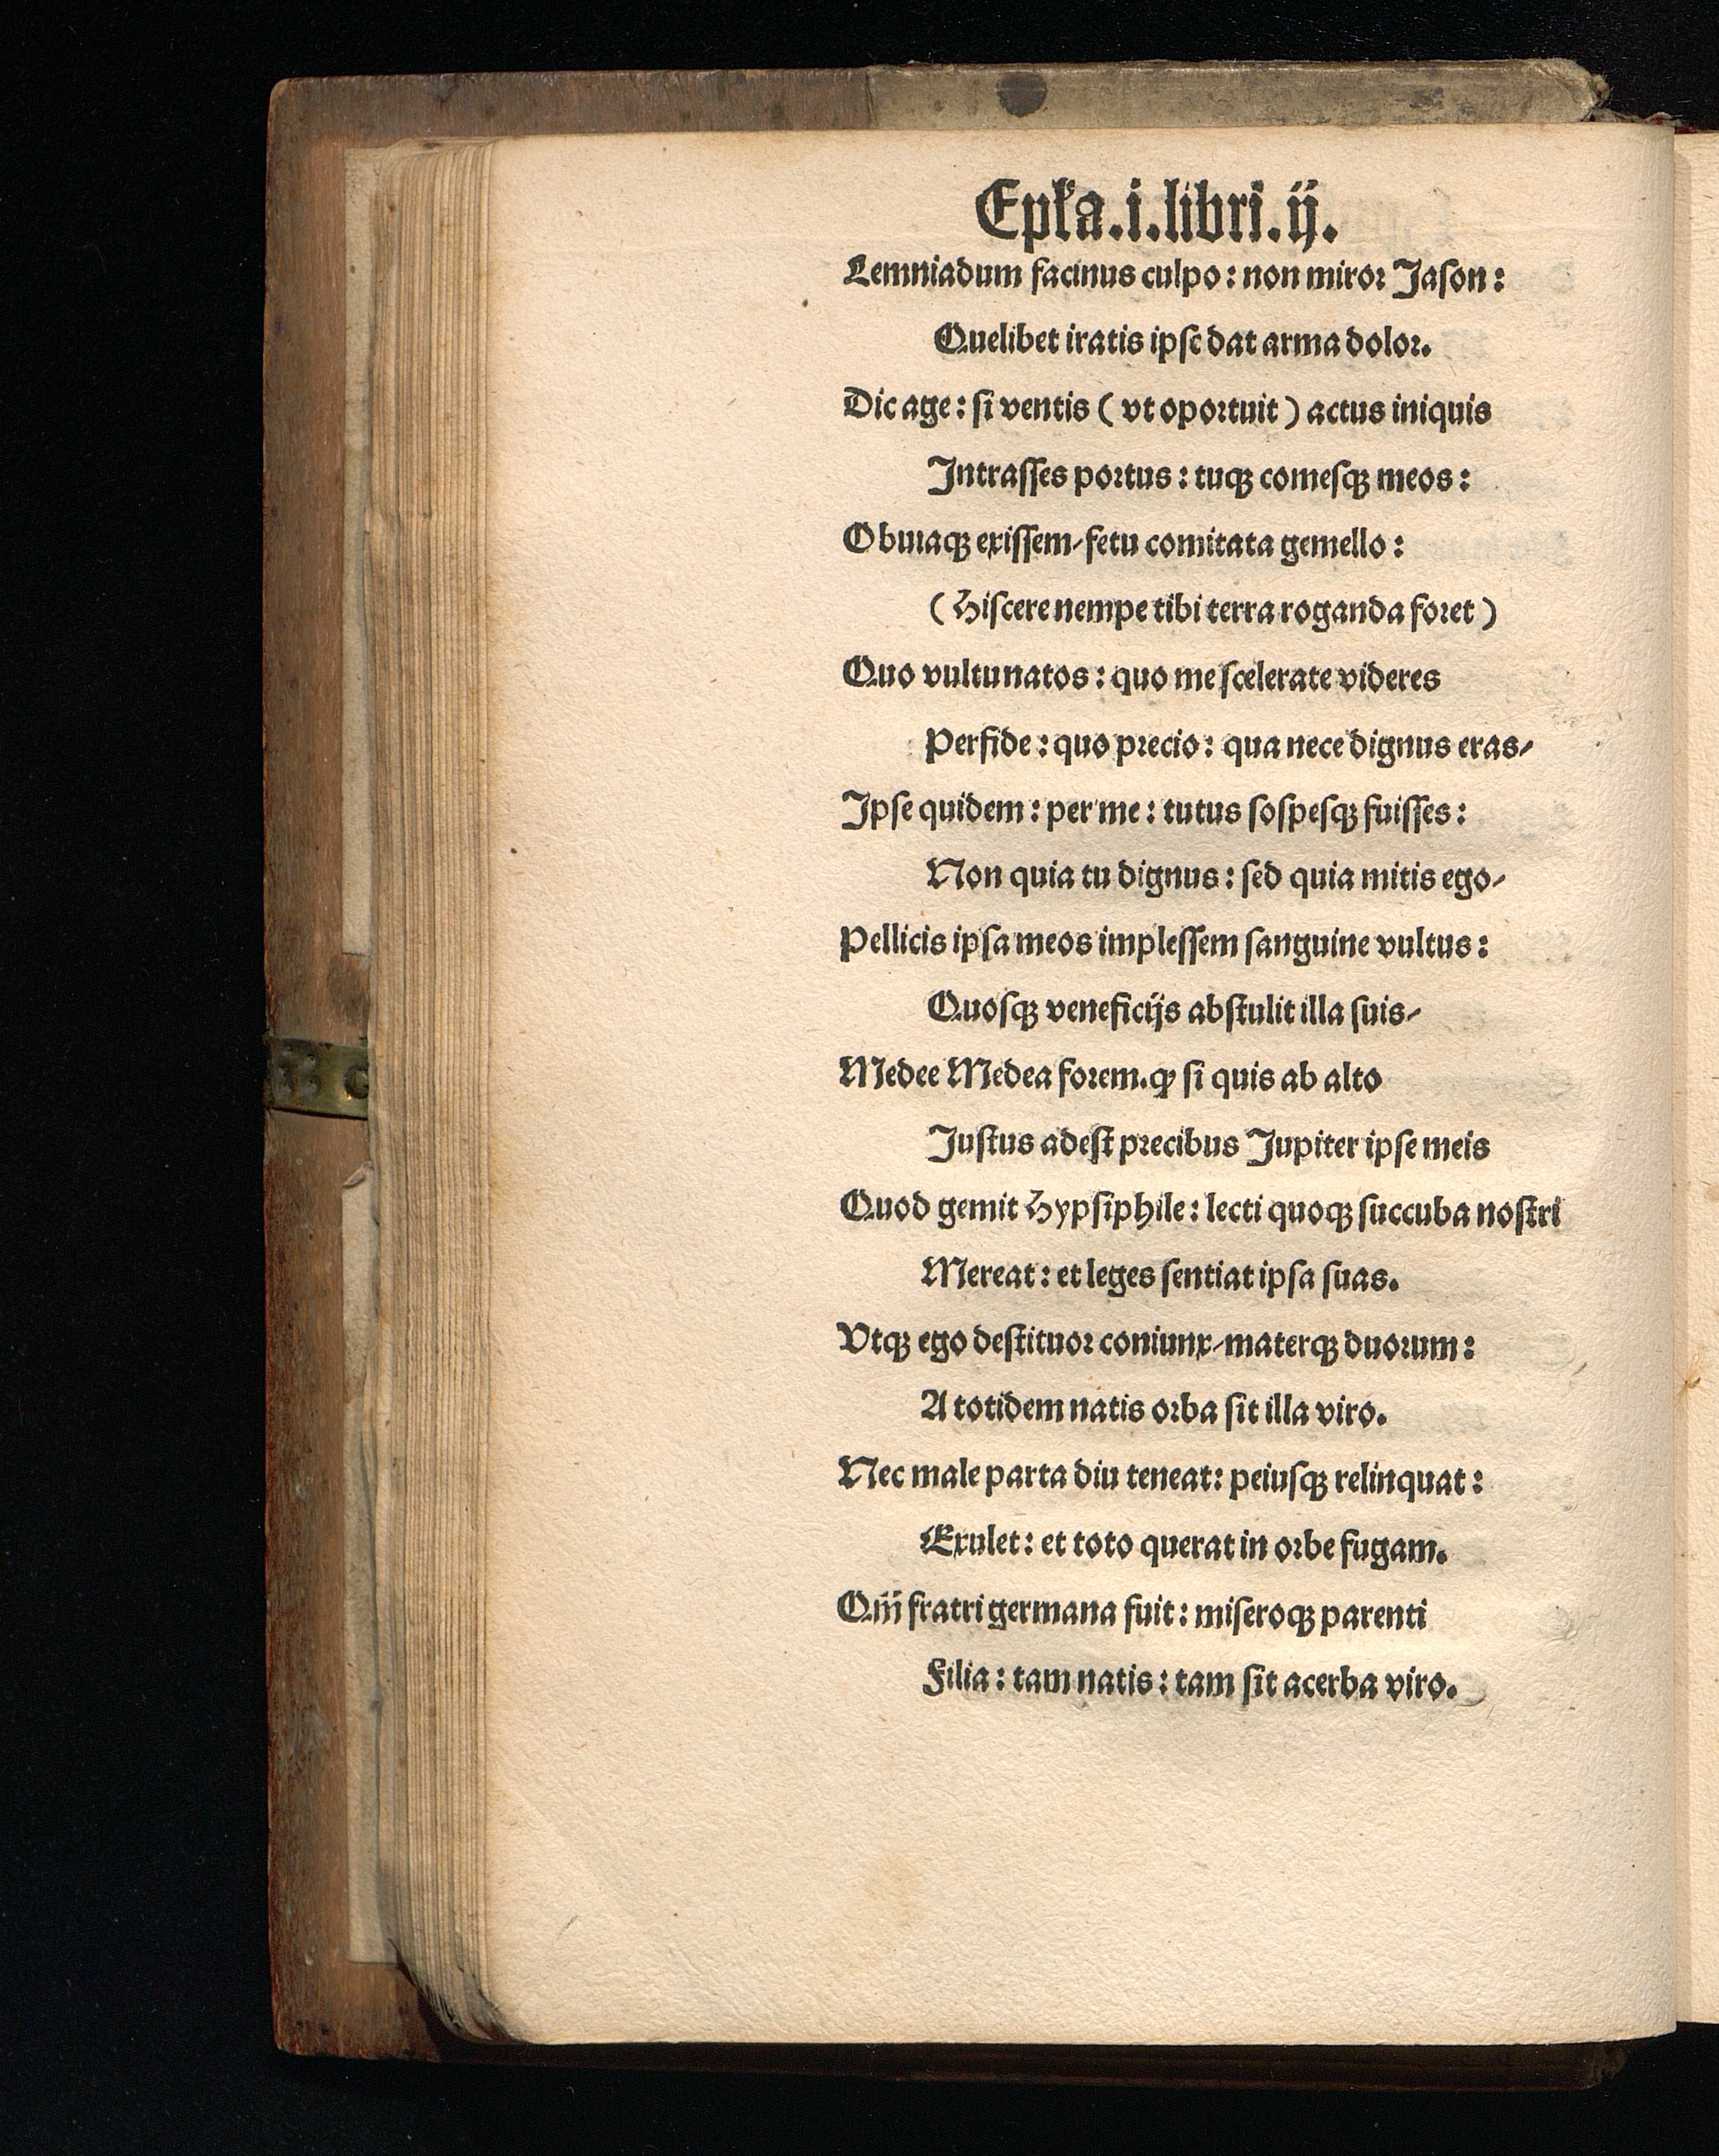 Epl'a.i.libri.ij.
Lemniadum facinus culpo: non miroꝛ Jaſon:
Quelibet iratis ipſe dat arma doloꝛ.
Dic age: ſi ventis ( vt opoꝛtuit ) actus iniquis
Intraſſes poꝛtus: tuqꝫ comeſqꝫ meos:
Obuiaqꝫ exiſſem/ fetu comitata gemello:
( Hiſcere nempe tibi terra roganda foꝛet )
Quo vultu natos: quo me ſcelerate videres
Perfide: quo pꝛecio: qua nece dignus eras/
Ipſe quidem: per me: tutus ſoſpeſqꝫ fuiſſes:
Non quia tu dignus: ſed quia mitis ego/
Pellicis ipſa meos impleſſem ſanguine vultus:
Quoſqꝫ veneficijs abſtulit illa ſuis/
Medee Medea foꝛem. ꝙ ſi quis ab alto
Juſtus adeſt pꝛecibus Jupiter ipſe meis
Quod gemit Hypſiphile: lecti quoqꝫ ſuccuba noſtri
Mereat: et leges ſentiat ipſa ſuas.
Vtqꝫ ego deſtituoꝛ coniunx/ materqꝫ duoꝛum:
A totidem natis oꝛba ſit illa viro.
Nec male parta diu teneat: peiuſqꝫ relinquat:
Exulet: et toto querat in oꝛbe fugam.
Qm̄ fratri germana fuit: miſeroqꝫ parenti
Filia: tam natis: tam ſit acerba viro.